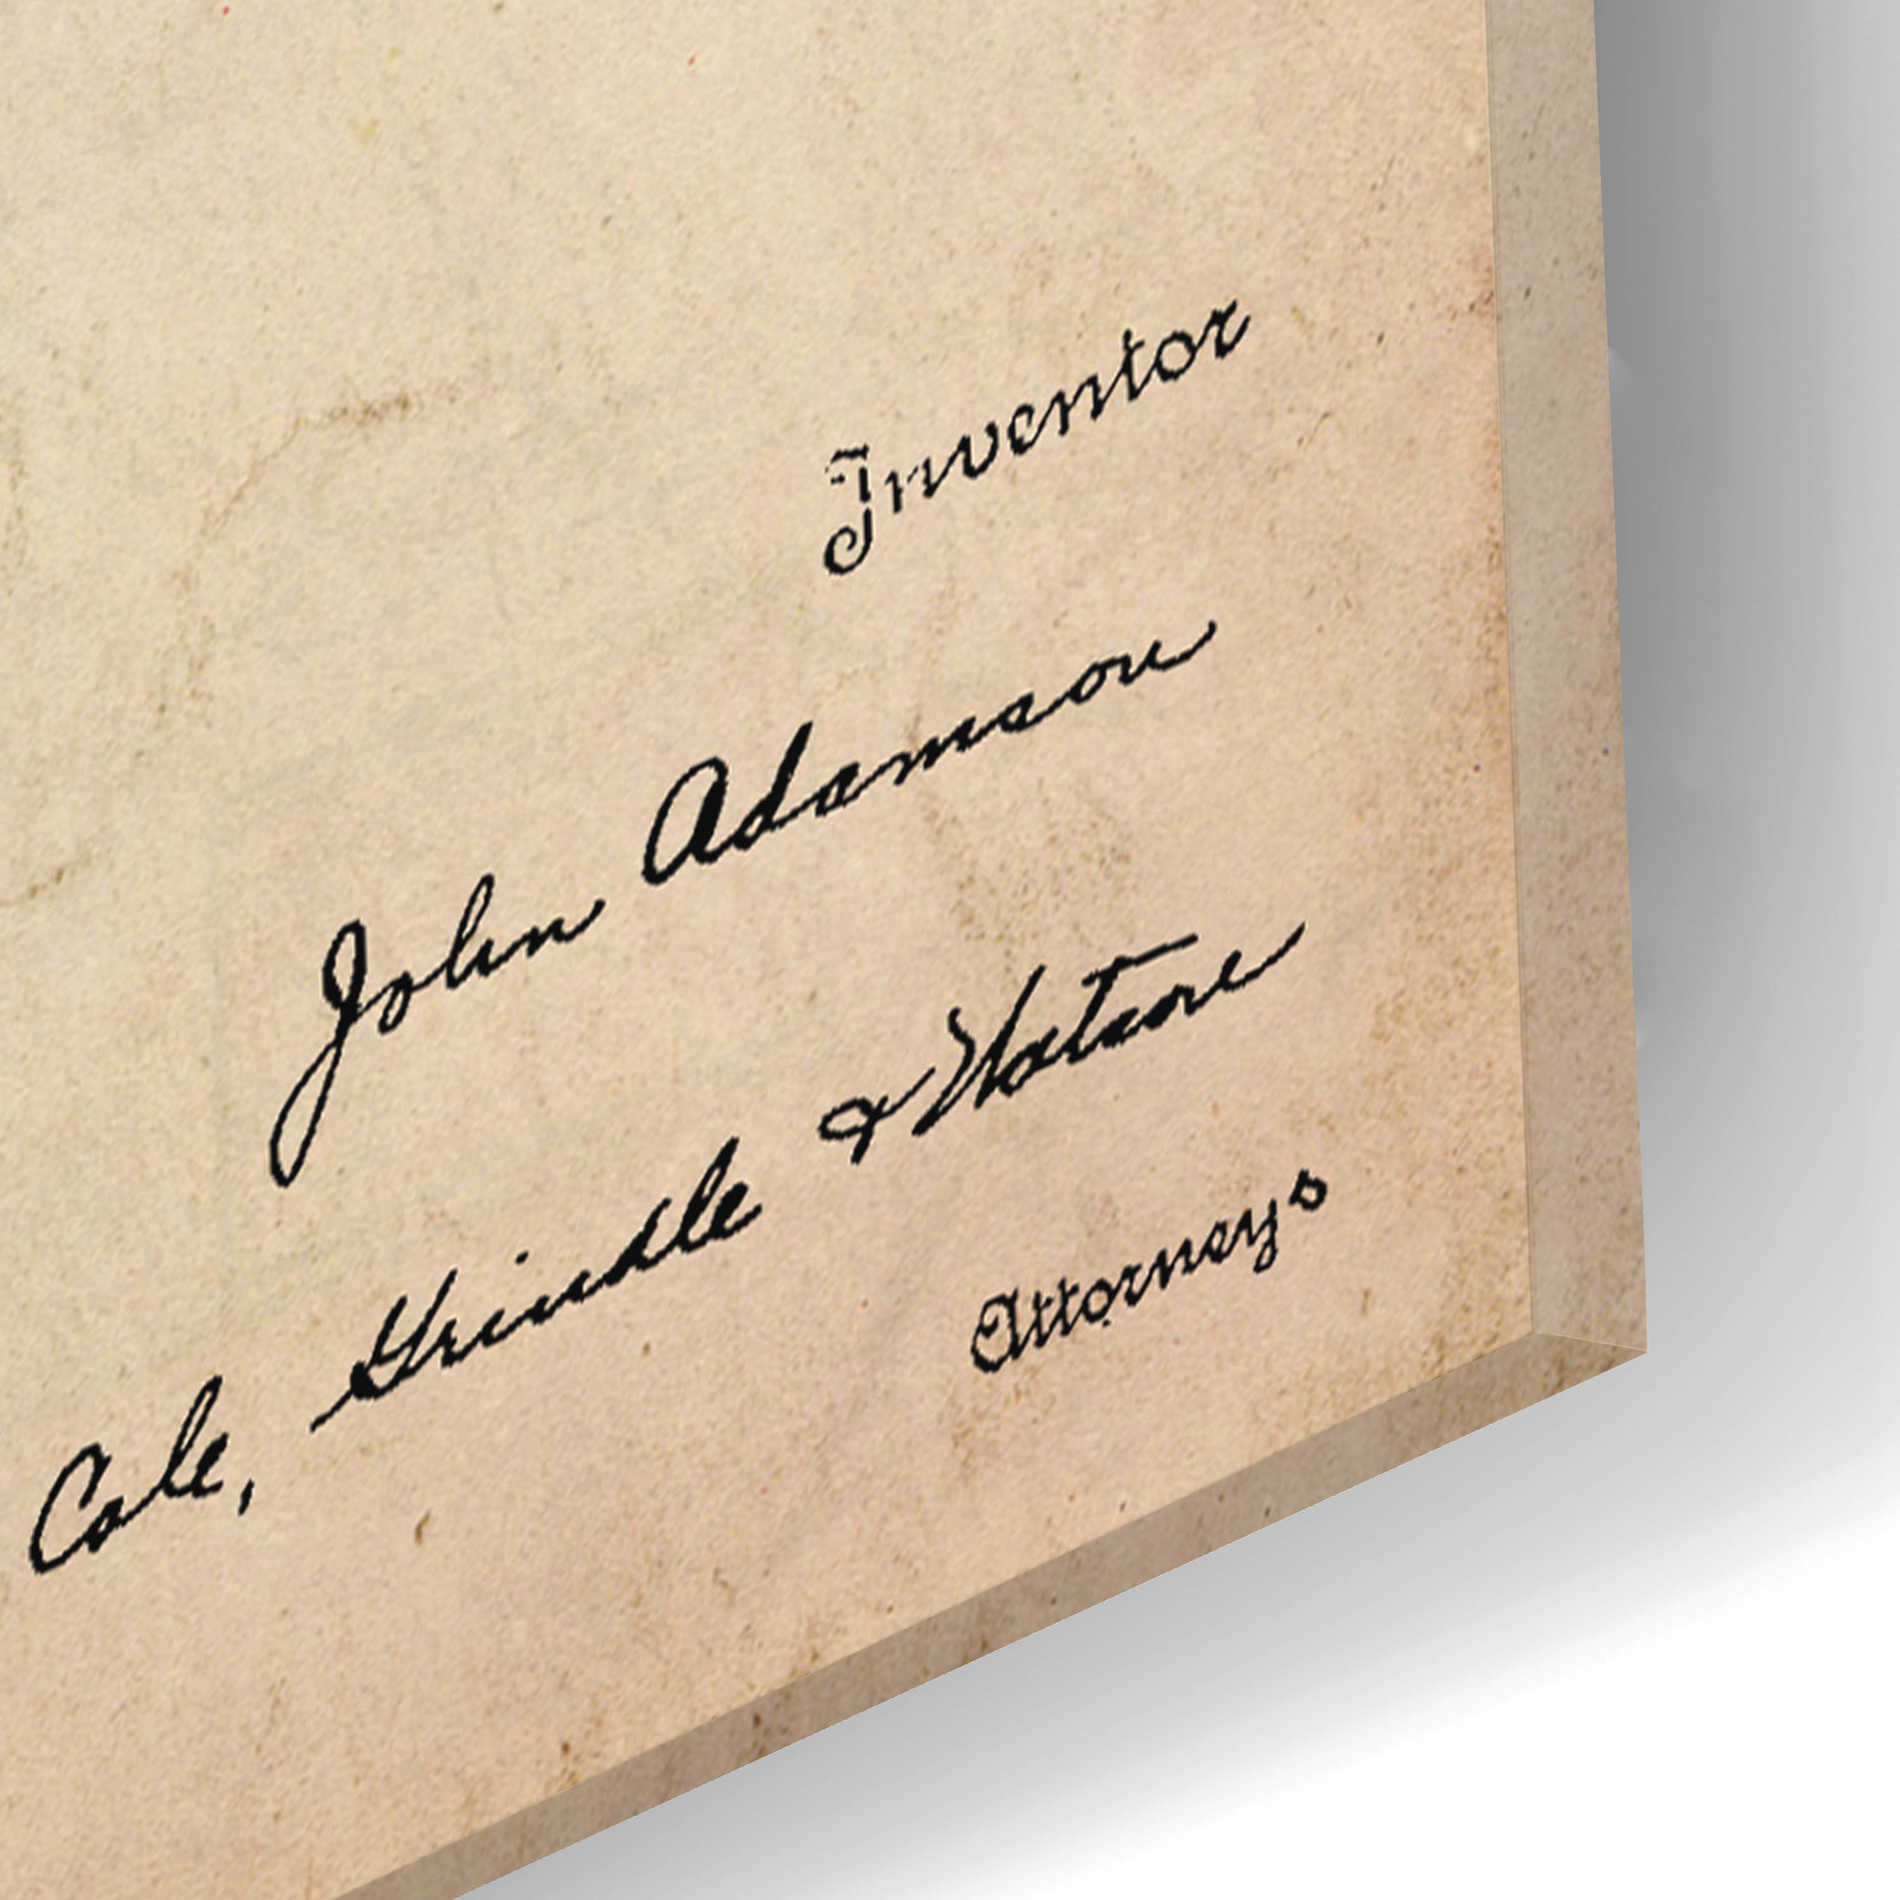 Inventor
John Adamson
Cale, Grindle & Watson
Attorneys